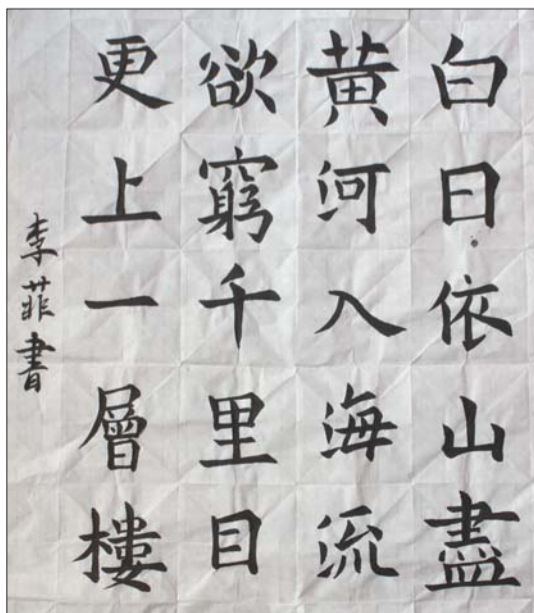 白日依山盡
黃河入海流
欲窮千里目
更上一層樓
李菲書